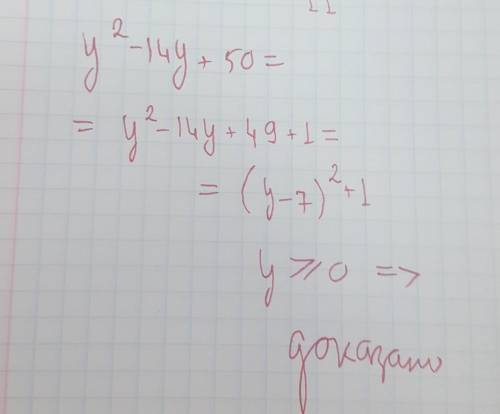 y² - 14y + 50 =
= y² - 14y + 49 + 1 =
= (y - 7)² + 1
y ⩾ 0 =>
доказано